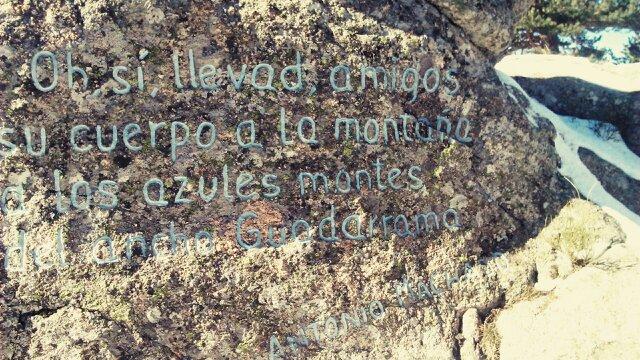 Oh, sí, llevad, amigos
su cuerpo a la montaña
a los azules montes
del ancho Guadarrama
ANTONIO MACHADO